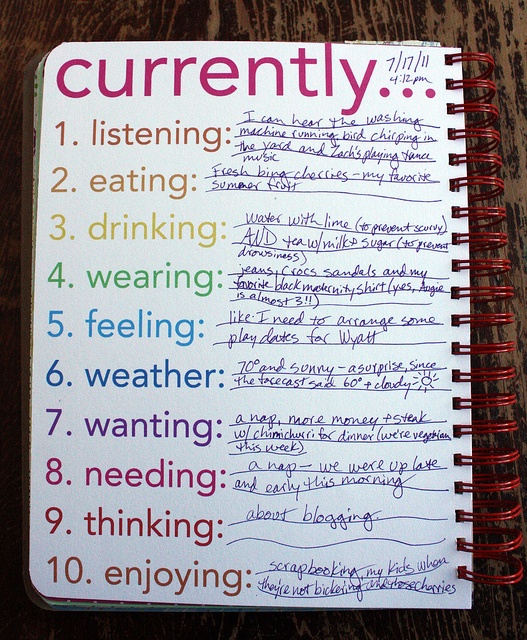 currently...
7/17/11
4:12pm
1. listening: I can hear the washing
machine running, bird chirping in
the yard and Zach's playing trance
music
2. eating: Fresh bing cherries - my favorite
summer fruit
3. drinking: Water with lime (to prevent scurvy)
AND tea w/milk + sugar (to prevent
drowsiness)
4. wearing: jeans, crocs sandals and my
favorite black maternity shirt (yes, Augie
is almost 3!!)
5. feeling: like I need to arrange some
play dates for Wyatt
6. weather: 70° and sunny - a surprise, since
the forecast said 60° + cloudy
7. wanting: a nap, more money + steak
w/ chimichurri for dinner (we're vegetarian
this week)
8. needing: a nap - we were up late
and early this morning
9. thinking: about blogging.
10. enjoying: scrapbooking, my kids when
they're not bickering and those cherries